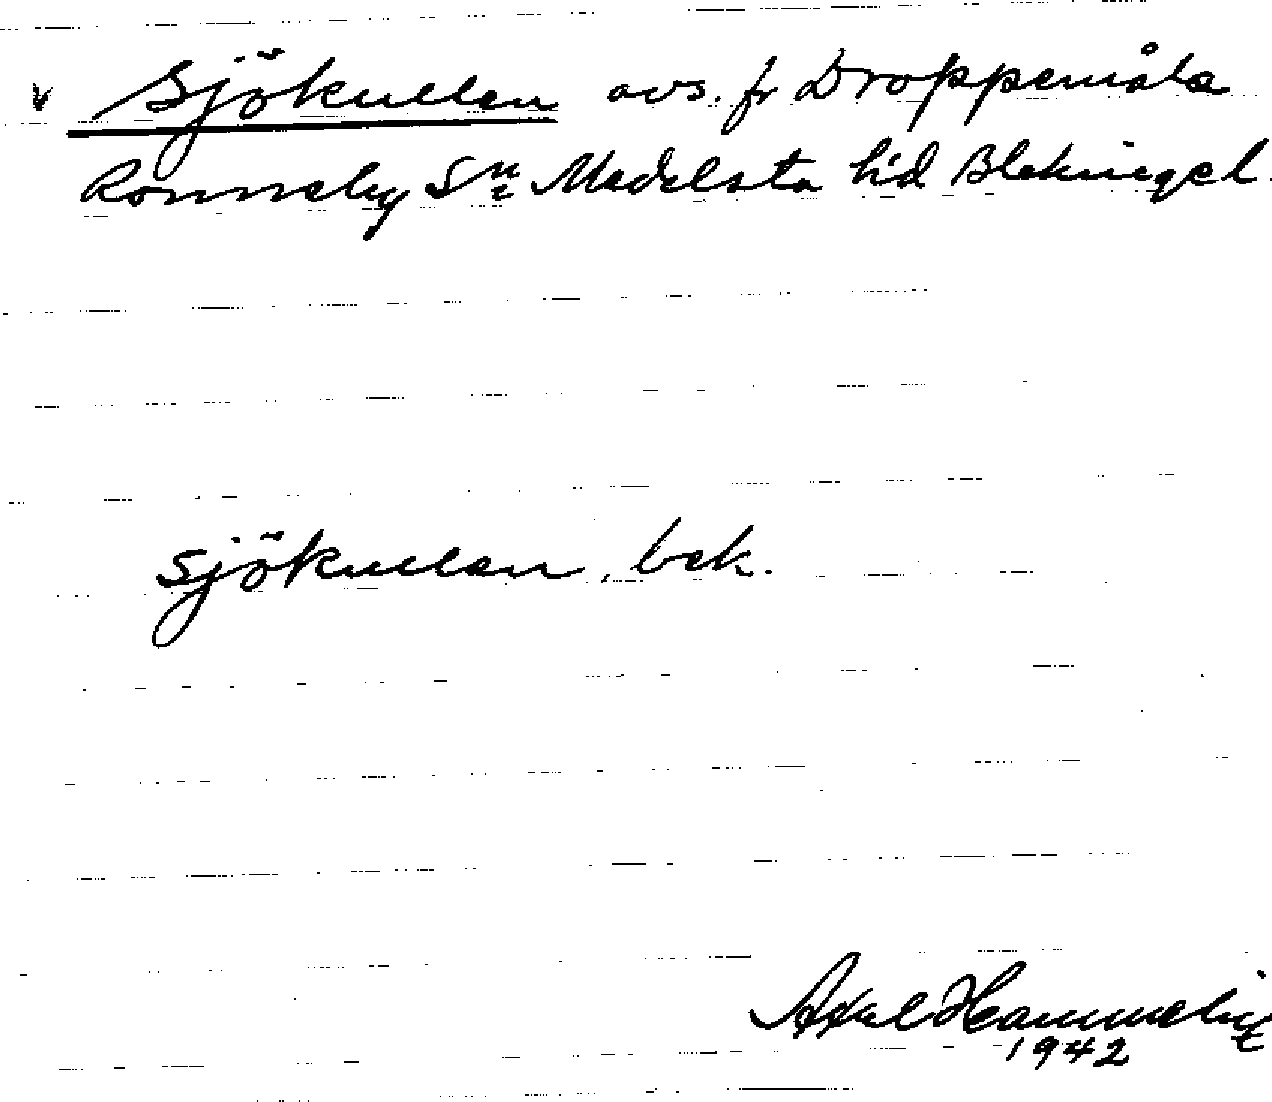 v Sjökullen avs. fr Droppemåla
Ronneby Sn Medelsta hd Blekinge l.
Sjökullen, bek.
Axel Hammelin
1942